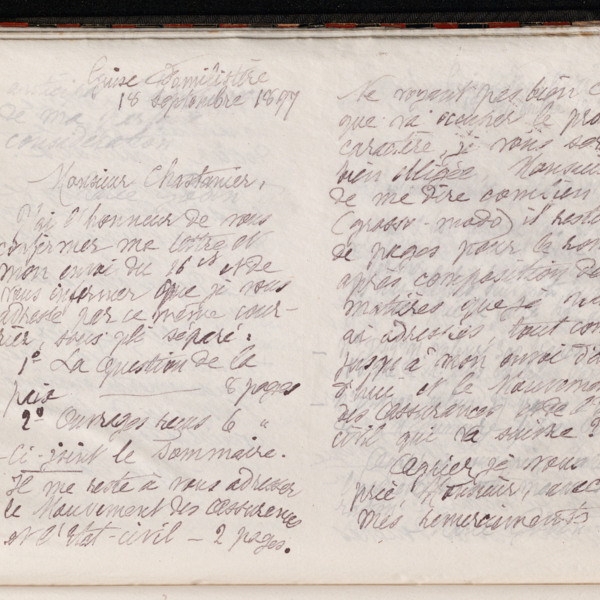 Guise Familistère
18 septembre 1897
Monsieur Chastanier,
J'ai l'honneur de vous
confirmer ma lettre et
mon envoi du 16 ct et de
vous informer que je vous
adresse par ce même cour-
rier, sous pli séparé :
1° La question de la
paix ——— 8 pages
2° Ouvrages reçus 6 "
Ci-joint le Sommaire.
Il me reste à vous adresser
le Mouvement des assurances
et l'Etat-civil — 2 pages.
Ne voyant pas bien c
que va occuper le
caractère, je vous
bien obligée, Monsieur
de me dire combien
(grosso-modo) il reste
de pages pour le
après composition de
matières que je
ai adressées, tout
jusqu'à mon envoi d'
d'hui et le Mouvement
des assurances et de l'
civil qui va suivre ?
Agréer je vous
prie Monsieur, avec
mes remerciements